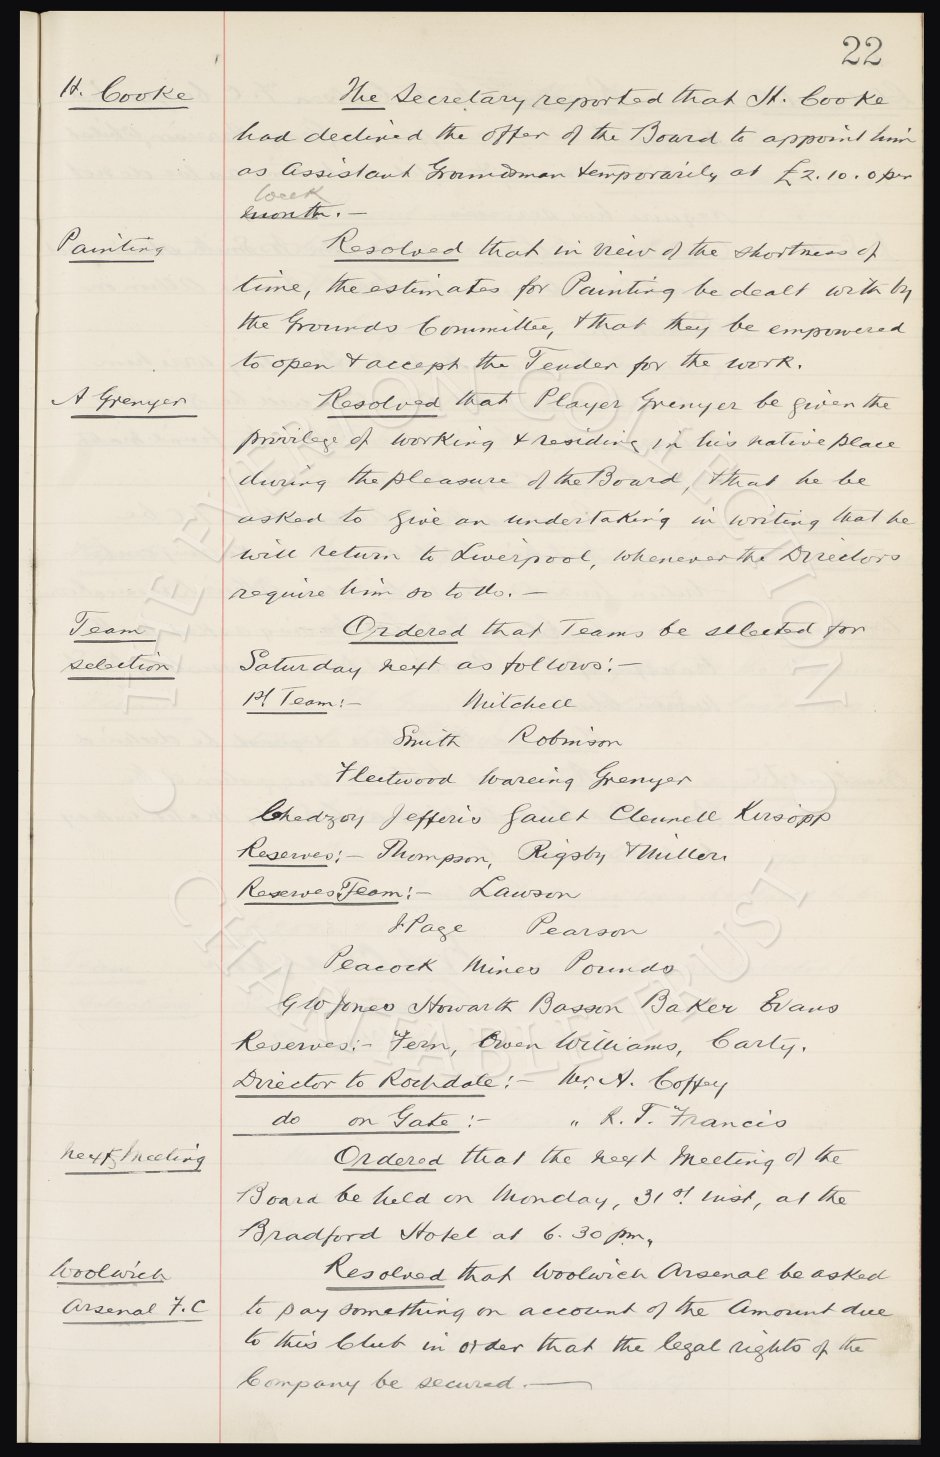 22
H. Cooke
The Secretary reported that H. Cooke
had declined the offer of the Board to appoint him
as Assistant Groundsman temporarily at £2.10.0 per
week
month. —
Painting
Resolved that in view of the shortness of
time, the estimates for Painting be dealt with by
the Grounds Committee, & that they be empowered
to open & accept the Tender for the work.
A Grenyer
Resolved that Player Grenyer be given the
privilege of working & residing in his native place
during the pleasure of the Board, & that he be
asked to give an undertaking in writing that he
will return to Liverpool, whenever the Directors
require him so to do. —
Team
selection
Ordered that Teams be selected for
Saturday next as follows:—
1st Team:— Mitchell
Smith Robinson
Fleetwood Wareing Grenyer
Chedzoy Jefferis Gault Clennell Kirsopp
Reserves:— Thompson, Rigsby & Miller
Reserves Team:— Lawson
J Page Pearson
Peacock Mines Pounds
G W Jones Howarth Basson Baker Evans
Reserves:— Fern, Owen Williams, Carty.
Director to Rochdale:— Mr. A. Coffey
do on Gate:— " R. T. Francis
Next Meeting
Ordered that the next Meeting of the
Board be held on Monday, 31st inst, at the
Bradford Hotel at 6.30 pm.
Woolwich
Arsenal F.C
Resolved that Woolwich Arsenal be asked
to pay something on account of the Amount due
to this Club in order that the legal rights of the
Company be secured. —
THE EVERTON COLLECTION
CHARITABLE TRUST